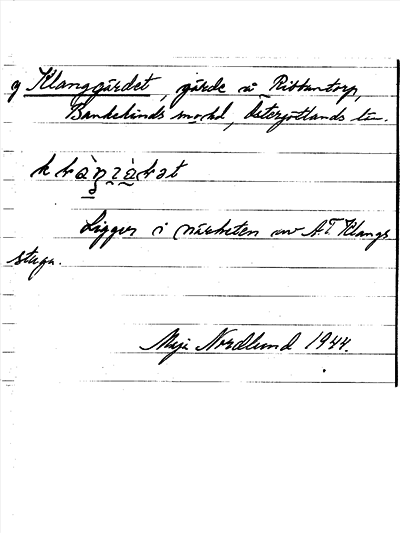 g Klanggärdet, gärde å Ribbentorp,
Bankekinds sn o hd, Östergötlands län.
Ligger i närheten av A.T. Klangs
stuga.
Maja Nordlund 1944.